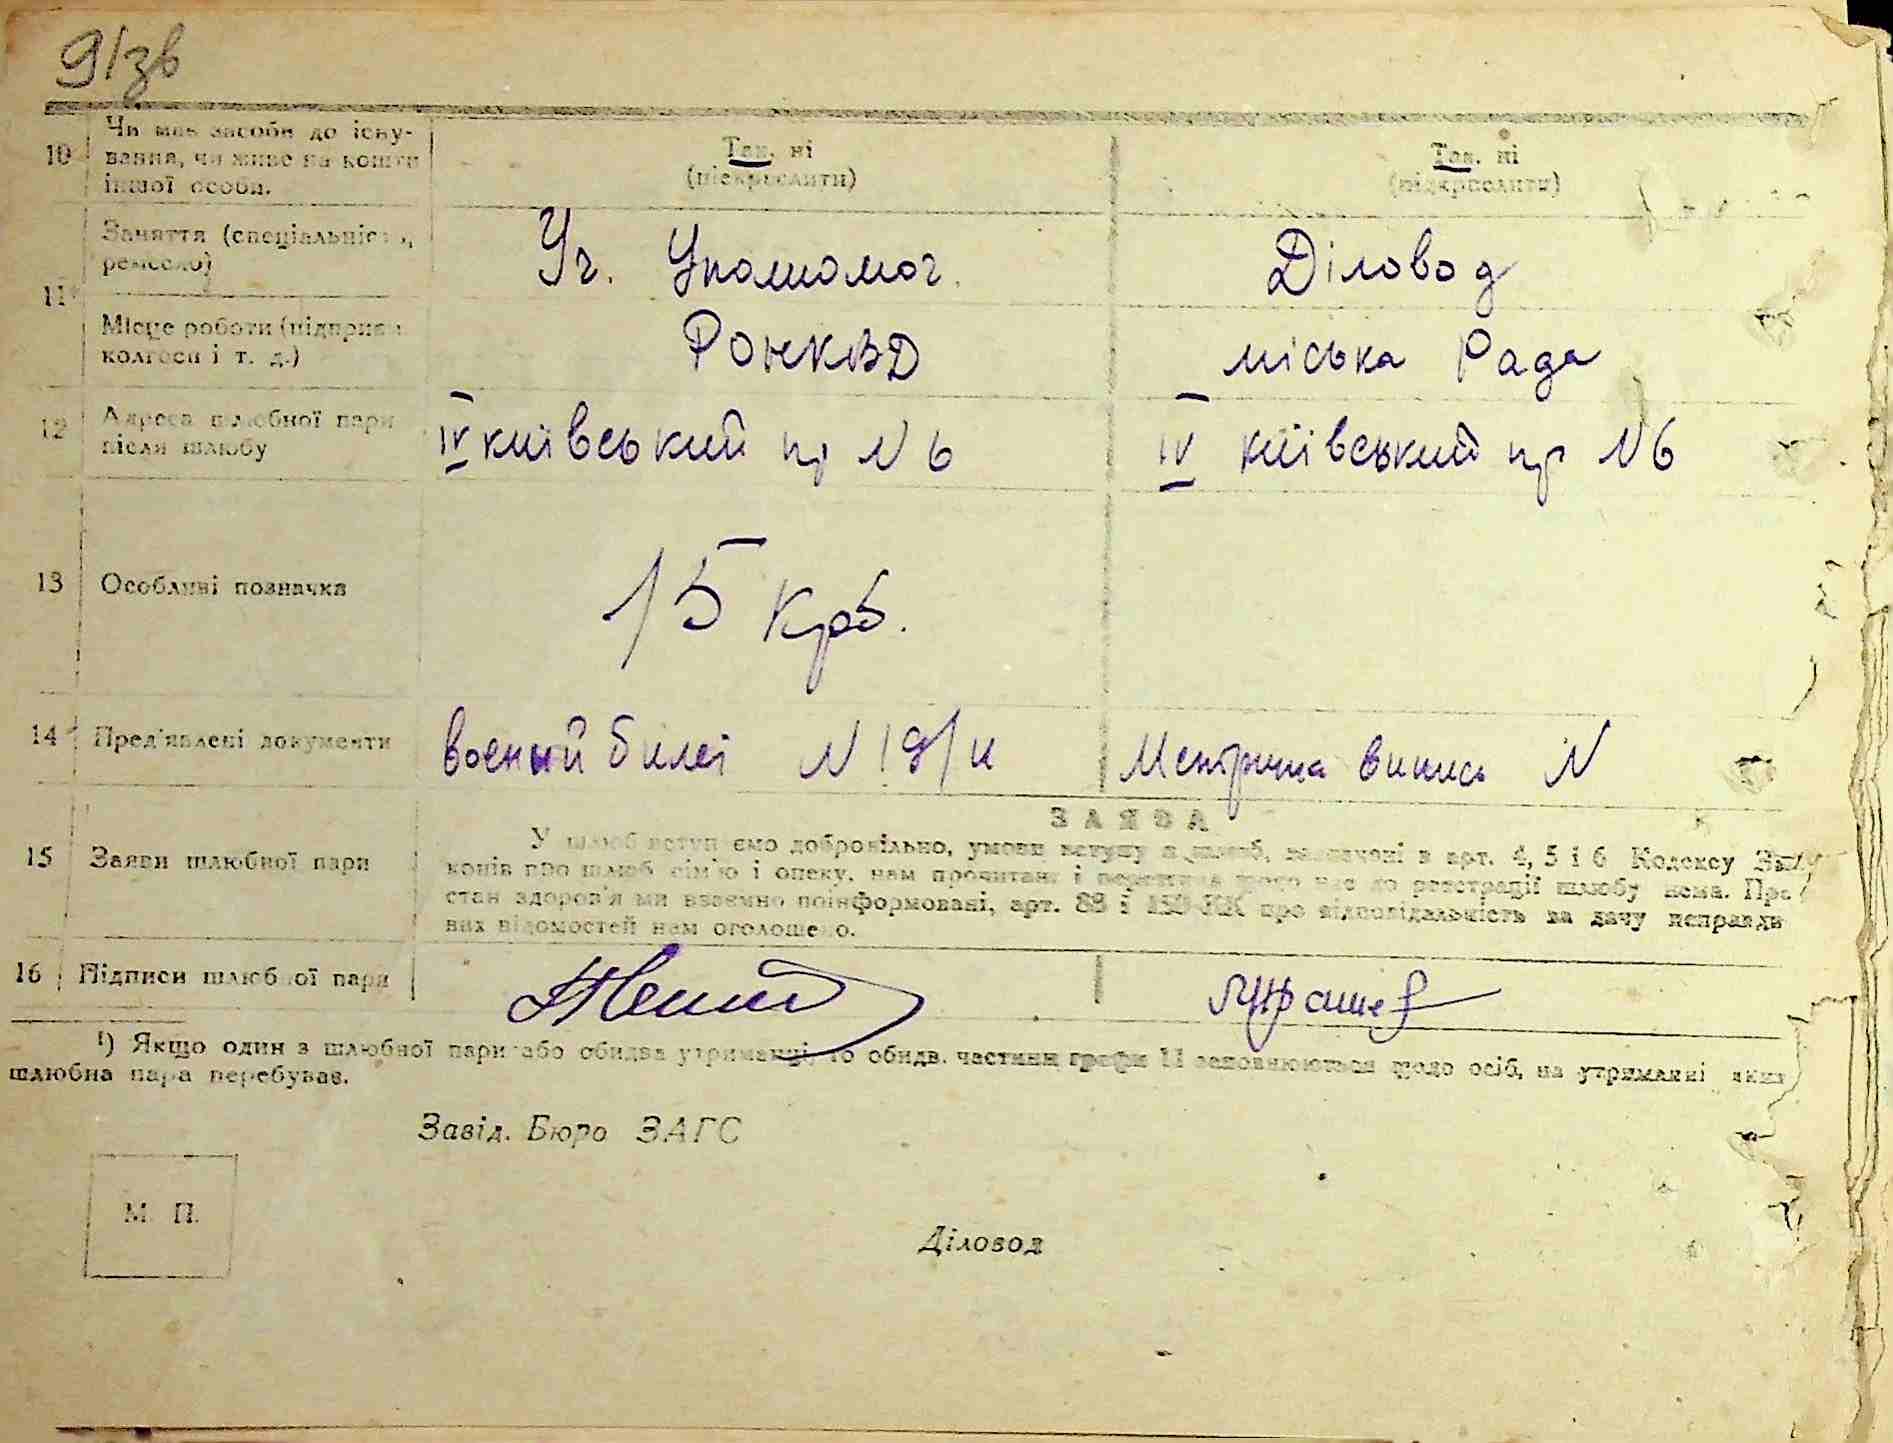 91зв
10 Чи має засоби до існу-
вання, чи живе на кошти
іншої особи.
Так. ні
(підкреслити)
Так. ні
(підкреслити)
11 Заняття (спеціальність,
ремесло)
Уч. Уповномоч.
Діловод
Місце роботи (підприєм
колгосп і т. д.)
РОНКВД
міська Рада
12 Адреса шлюбної пари
після шлюбу
IV київський пр N 6
IV київський пр N 6
13 Особливі позначка
15 крб.
14 Пред'явлені документи
военый билет N 19/и
Метрична випись N
15 Заяви шлюбної пари
ЗАЯВА
У шлюб вступаємо добровільно, умови вступу в шлюб, зазначені в арт. 4, 5 і 6 Кодексу За
конів про шлюб сім'ю і опеку, нам прочитані і перешкод щодо нас до реєстрації шлюбу нема. Про
стан здоров'я ми взаємно поінформовані, арт. 88 і 150 КК про відповідальність за дачу неправди
вих відомостей нам оголошено.
16 Підписи шлюбної пари
¹) Якщо один з шлюбної пари або обидва утриманці, то обидв. частини графи 11 заповнюються щодо осіб, на утриманні яких
шлюбна пара перебуває.
Завід. Бюро ЗАГС
М. П.
Діловод